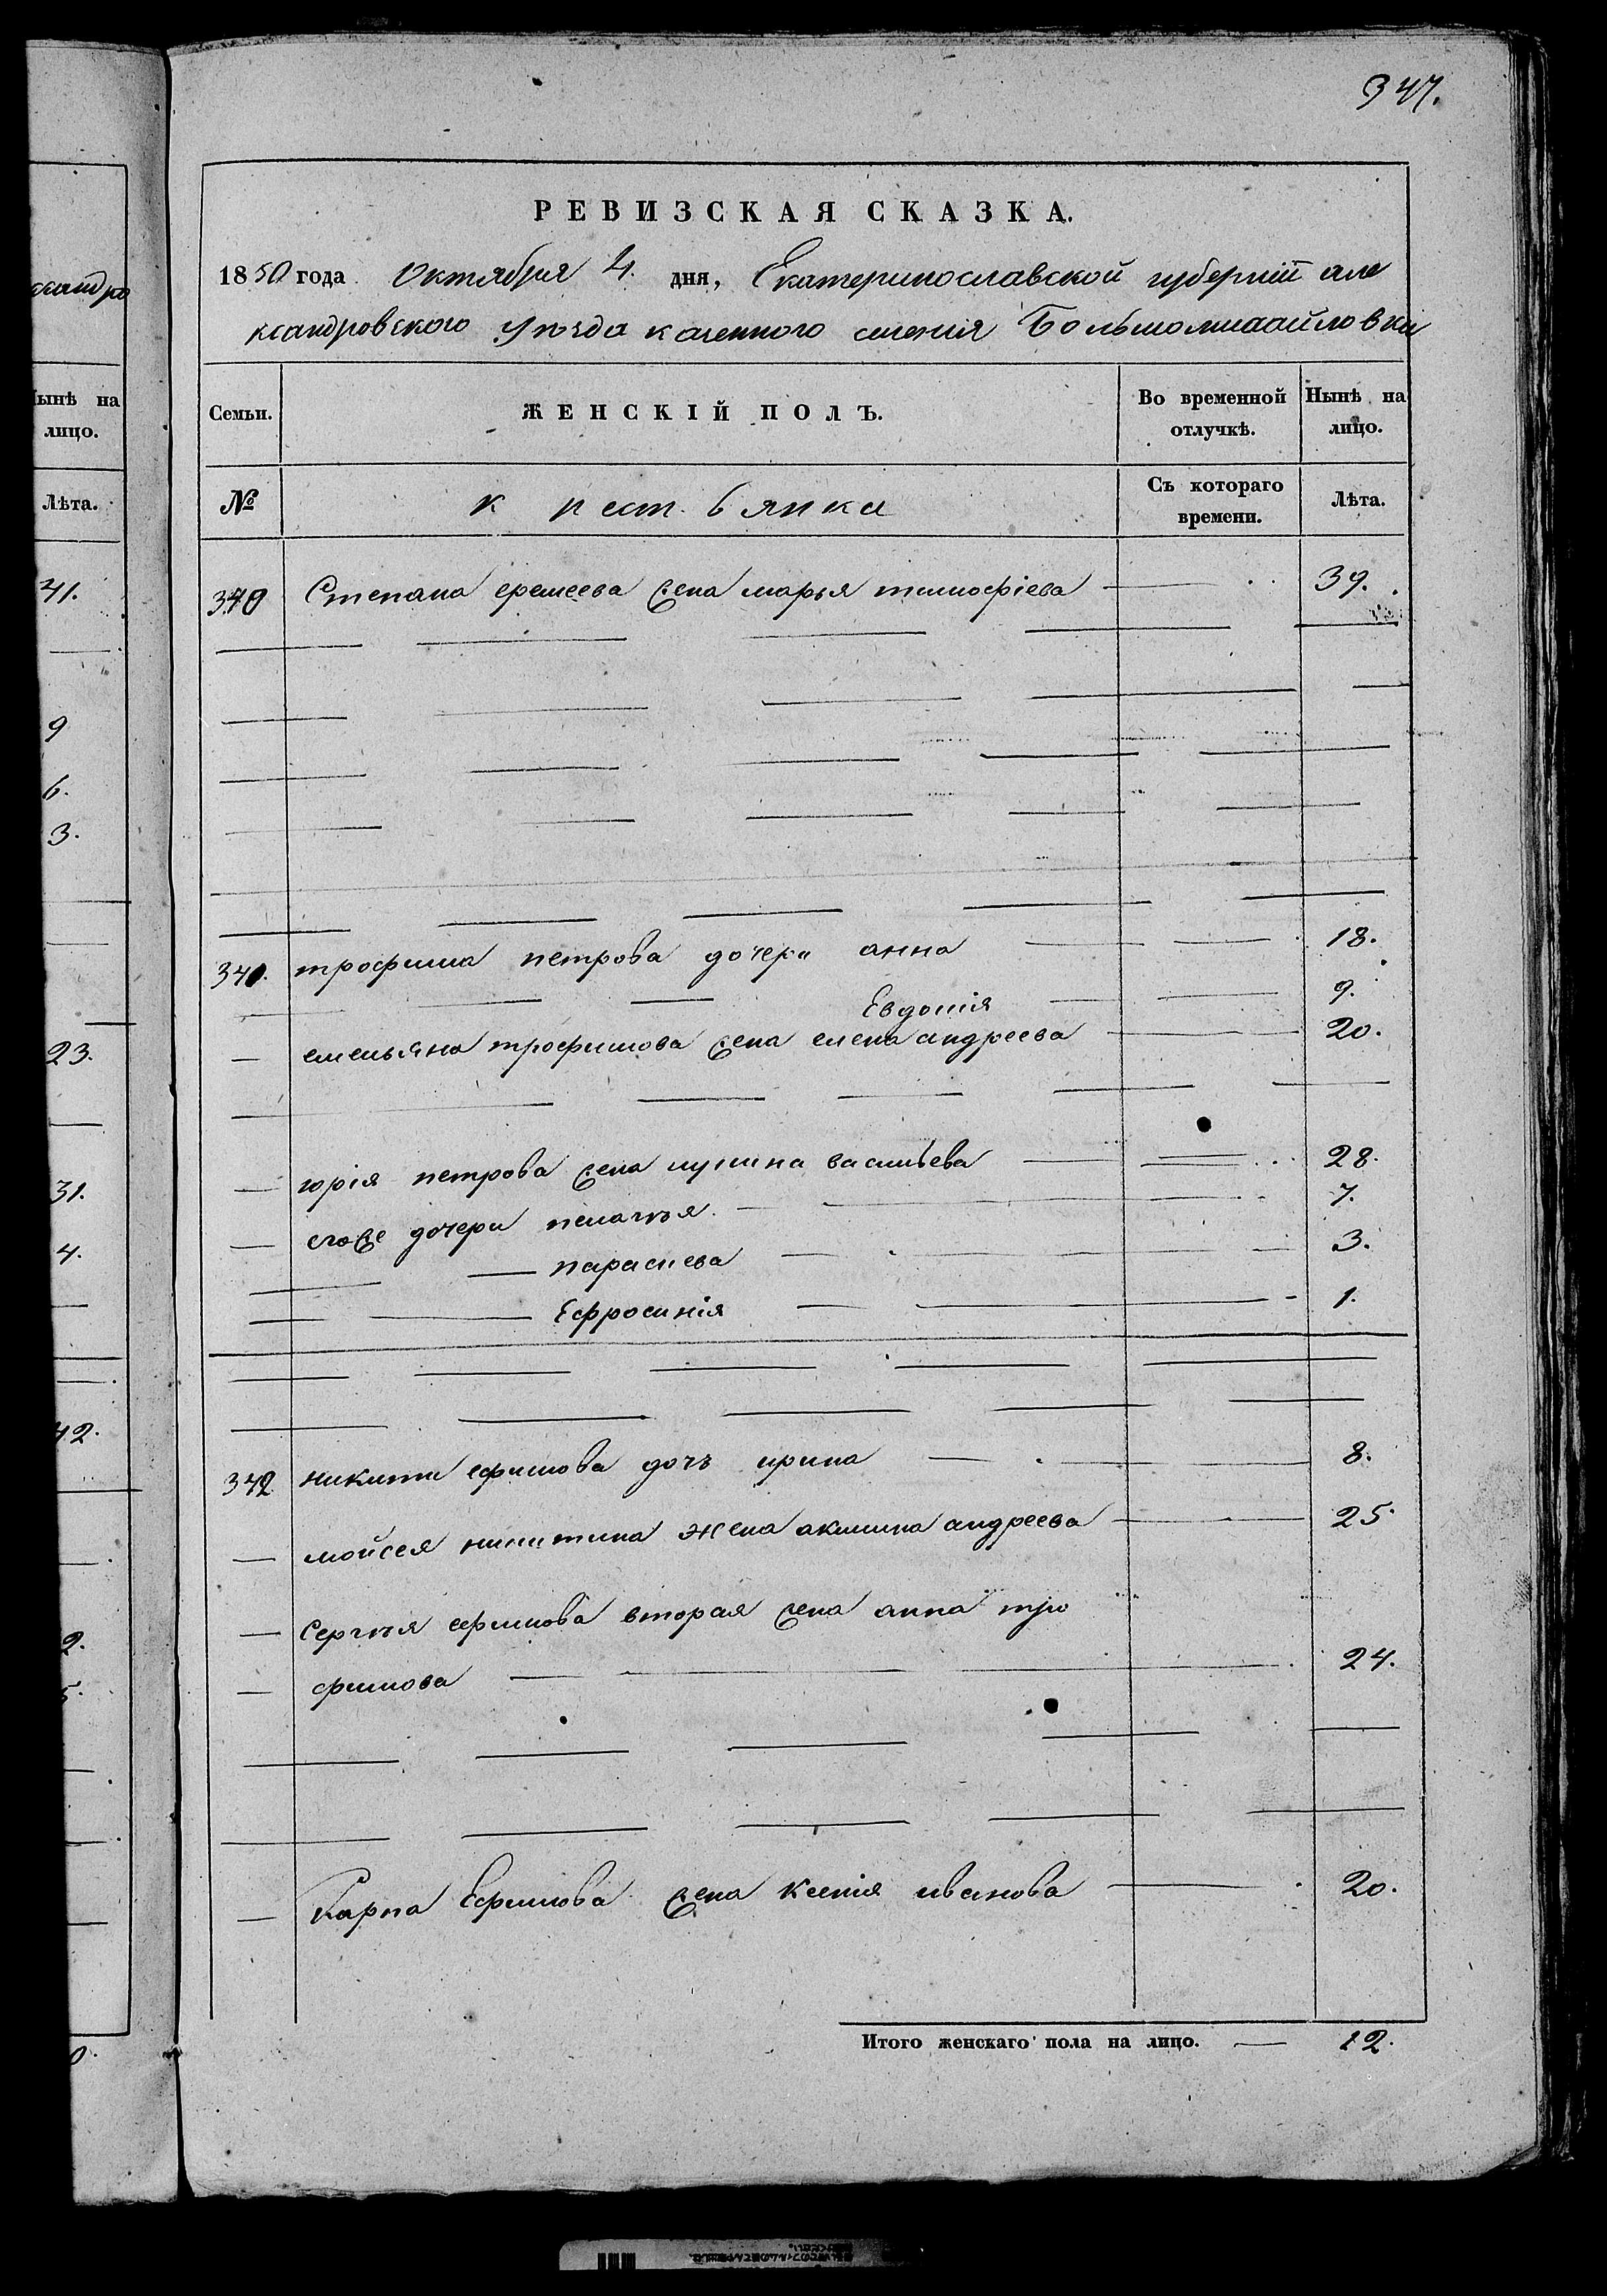 347.
РЕВИЗСКАЯ СКАЗКА.
1850 года Октября 4. дня, Екатеринославской губерніи але
ксандровского уѣзда казенного селенія Большомихайловки
Семьи.
ЖЕНСКІЙ ПОЛЪ.
Во временной отлучкѣ.
Нынѣ на лицо.
№
крестьянка
Съ котораго времени.
Лѣта.
340 Степана еремеева жена марья тимофіева 39.
341. трофима петрова дочери анна 18.
Евдокія 9.
емельяна трофимова жена елена андреева 20.
юрія петрова жена васильева 28.
егоже дочери пелагѣя 7.
параскева 3.
Ефросинія 1.
342 никиты ефимова дочь ирина 8.
мойсея никитина жена акилина андреева 25.
Сергѣя ефимова вторая жена анна тро
фимова 24.
Карпа Ефимова жена ксенія иванова 20.
Итого женскаго пола на лицо. 12.
ксандро
Нынѣ на
лицо.
Лѣта.
41.
9
6.
3.
23.
31.
4.
42.
2.
5.
0.